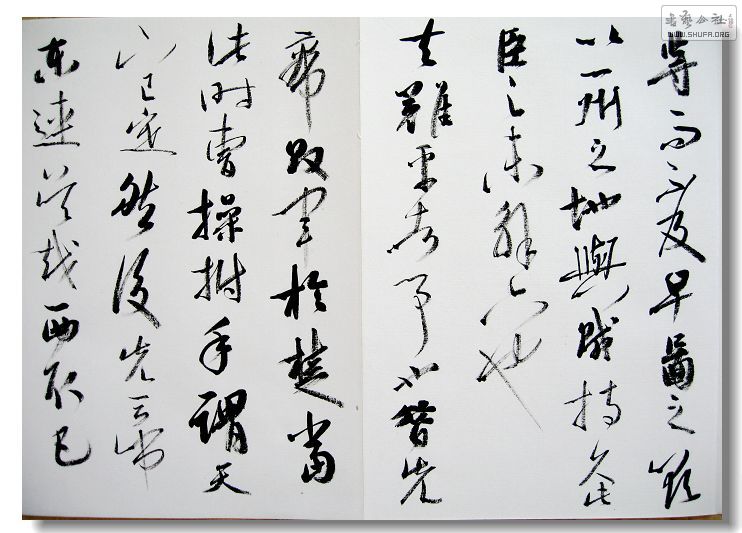 等而不及早圖之欲
以一州之地與賊持久此
臣之未解六也
夫難平者事也昔先
帝敗軍於楚當
此時曹操拊手謂天
下已定然後先帝
東連吳越西取巴
书艺公社
WWW.SHUFA.ORG